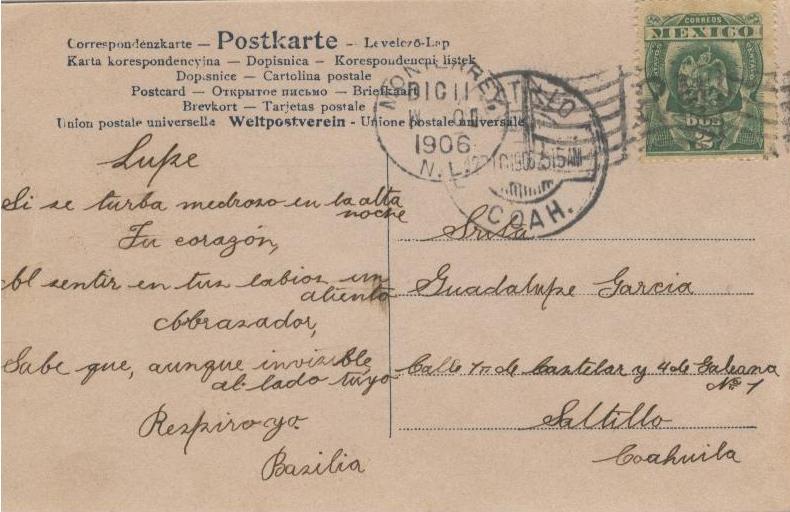 Correspondenzkarte — Postkarte — Levelező-Lap
Karta korespondencyina — Dopisnica — Korespondencni listek
Dopisnice — Cartolina postale
Postcard — Открытое письмо — Briefkaart
Brevkort — Tarjetas postale
Union postale universelle Weltpostverein - Unione postale universale
CORREOS
MEXICO
DOS
2
MONTERREY,
DIC 11
1906
N.L.
SALTILLO
12 DIC 1906 5 15 AM
COAH.
Lupe
Si se turba medroso en la alta
noche
Tu corazón,
Al sentir en tus labios un
aliento
Abrasador,
Sabe que, aunque invisible,
al lado tuyo
Respiro yo.
Basilia
Srita
Guadalupe Garcia
Calle 1ª de Castelar y 4 de Galeana
Nº 1
Saltillo
Coahuila